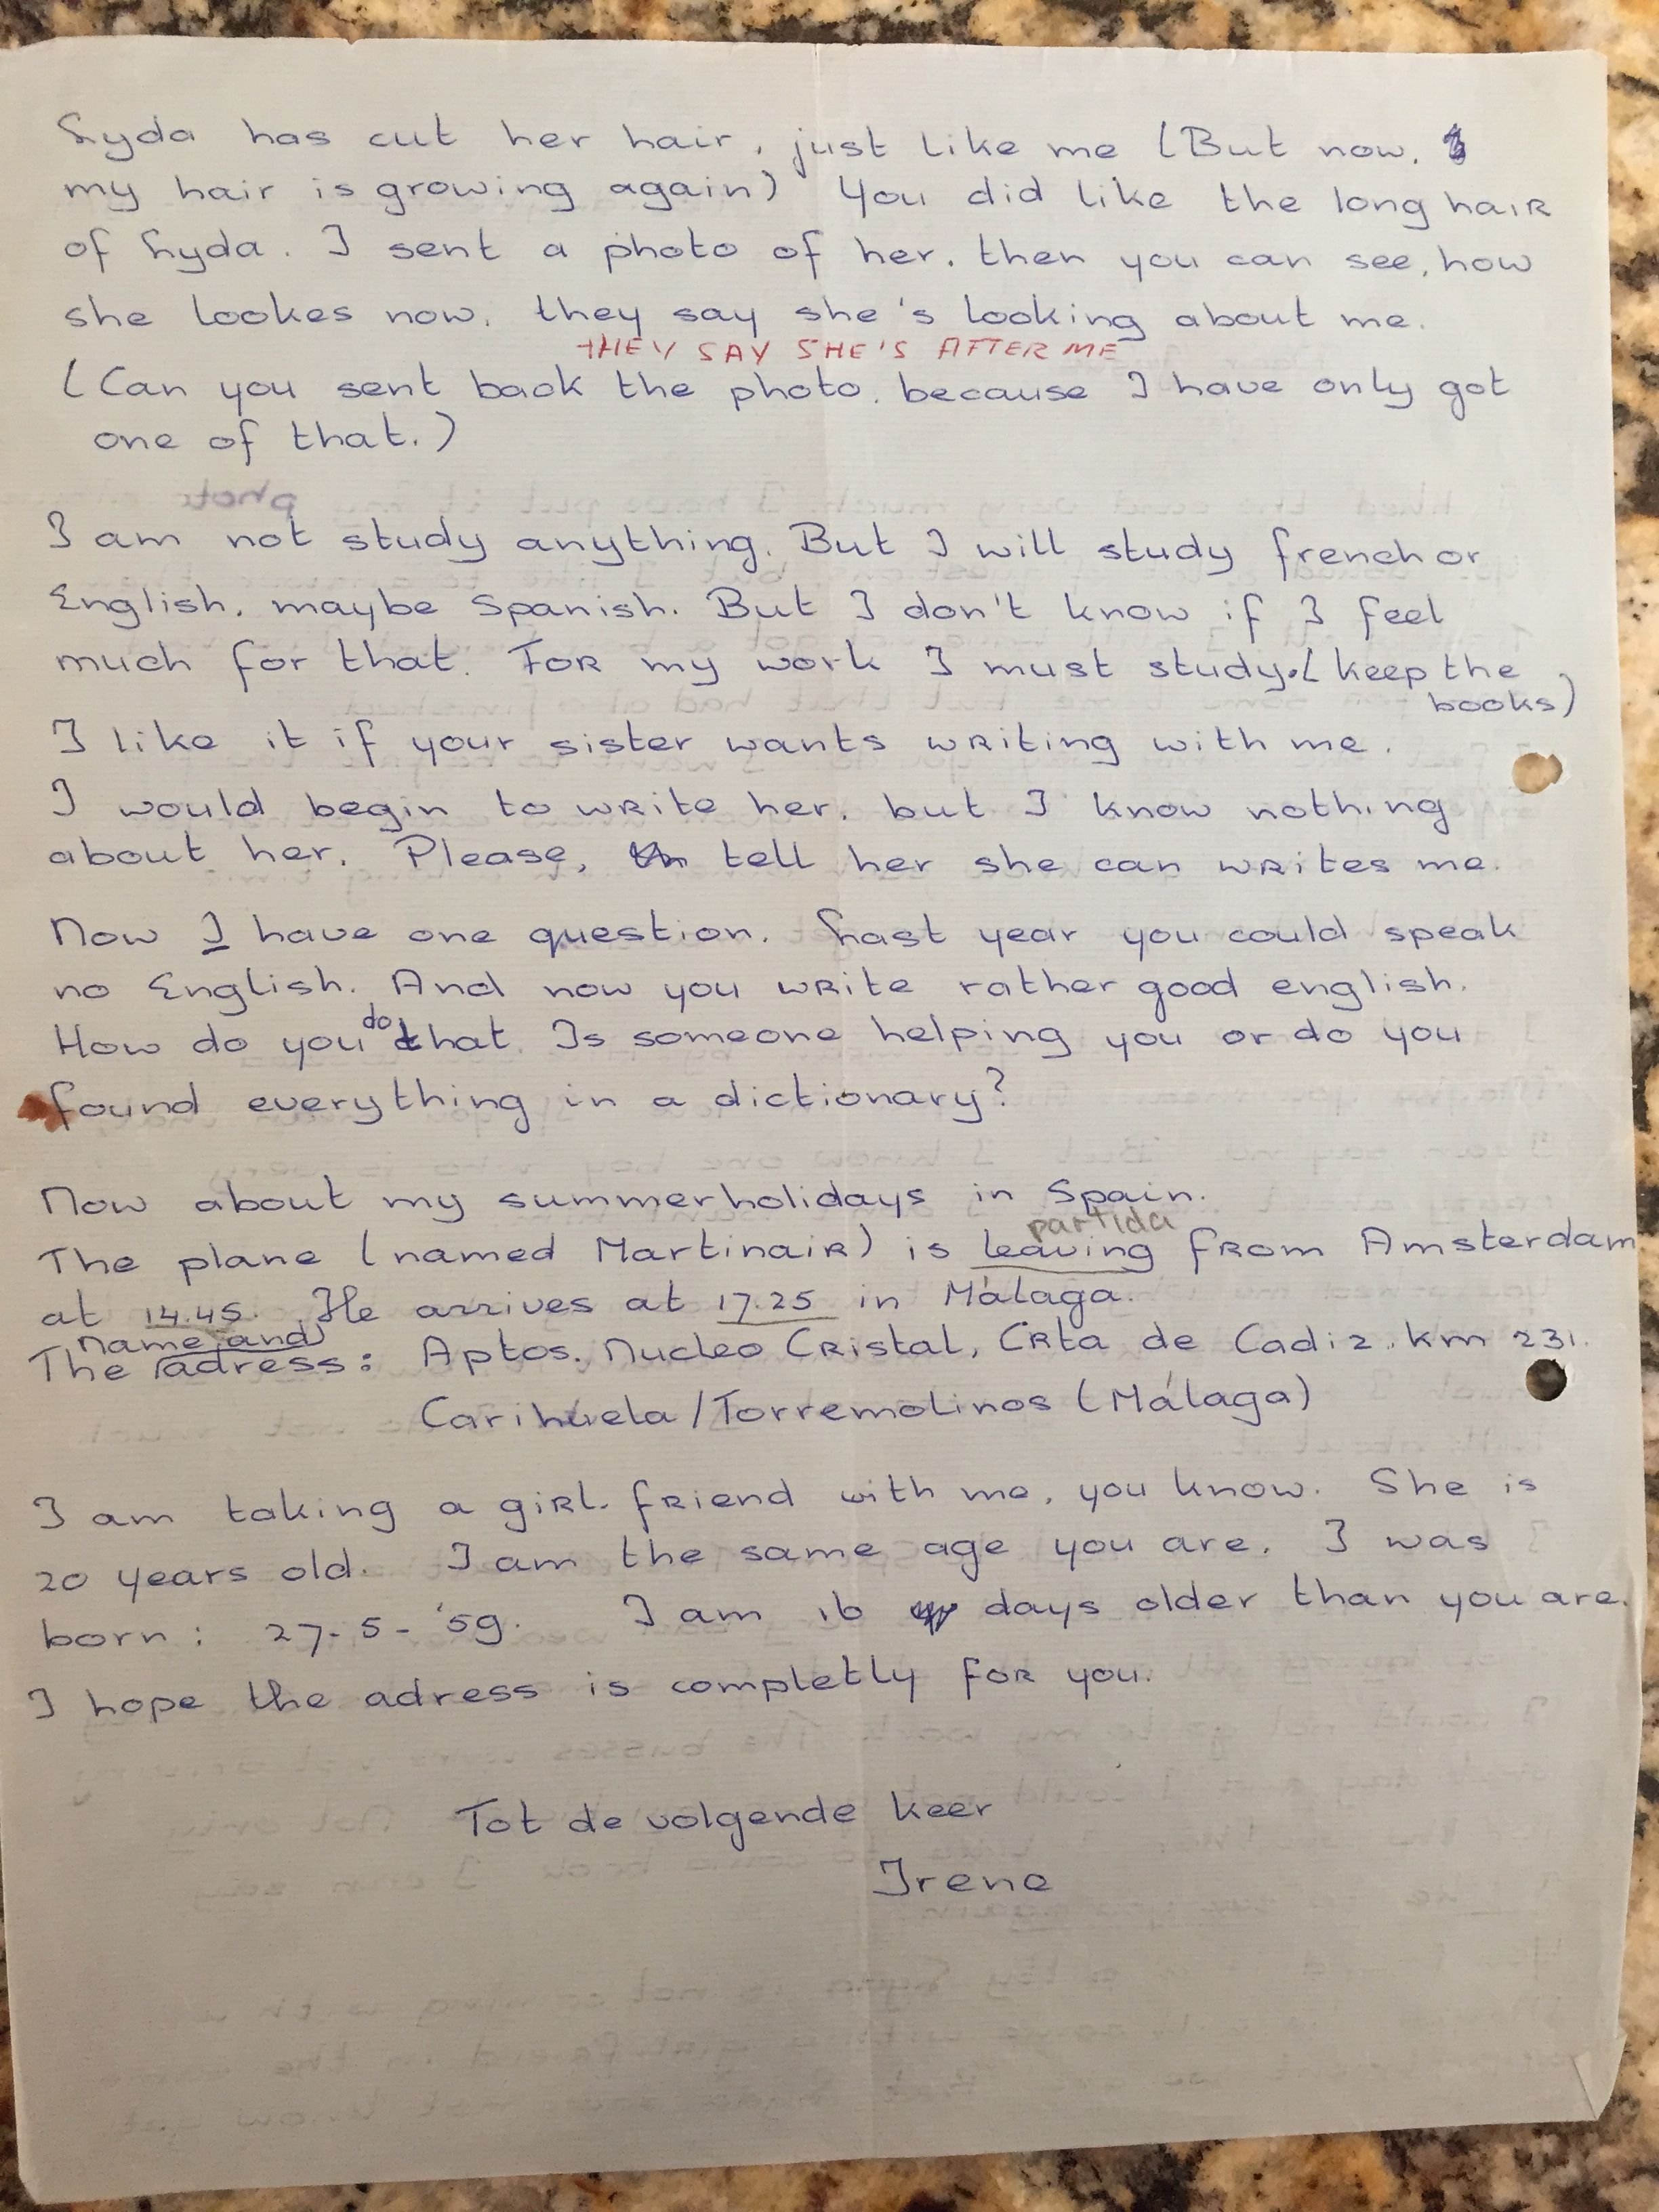 Lyda has cut her hair, just like me (But now,
my hair is growing again) You did like the long hair
of Lyda. I sent a photo of her, then you can see, how
she lookes now, they say she's looking about me.
THEY SAY SHE'S AFTER ME
(Can you sent back the photo, because I have only got
one of that.)
I am not study anything. But I will study french or
English, maybe Spanish. But I don't know if I feel
much for that. For my work I must study. (keep the
books)
I like it if your sister wants writing with me.
I would begin to write her, but I know nothing
about her. Please, tell her she can writes me.
Now I have one question. Last year you could speak
no English. And now you write rather good english.
do
How do you that. Is someone helping you or do you
found everything in a dictionary?
Now about my summerholidays in Spain.
partida
The plane (named Martinair) is leaving from Amsterdam
at 14.45. He arrives at 17.25 in Málaga.
name and
The adress: Aptos. Nucleo Cristal, Crta de Cadiz. km 231.
Carihuela/Torremolinos (Málaga)
I am taking a girl-friend with me, you know. She is
20 years old. I am the same age you are. I was
born: 27-5-'59. I am 16 days older than you are.
I hope the adress is completly for you.
Tot de volgende keer
Irene